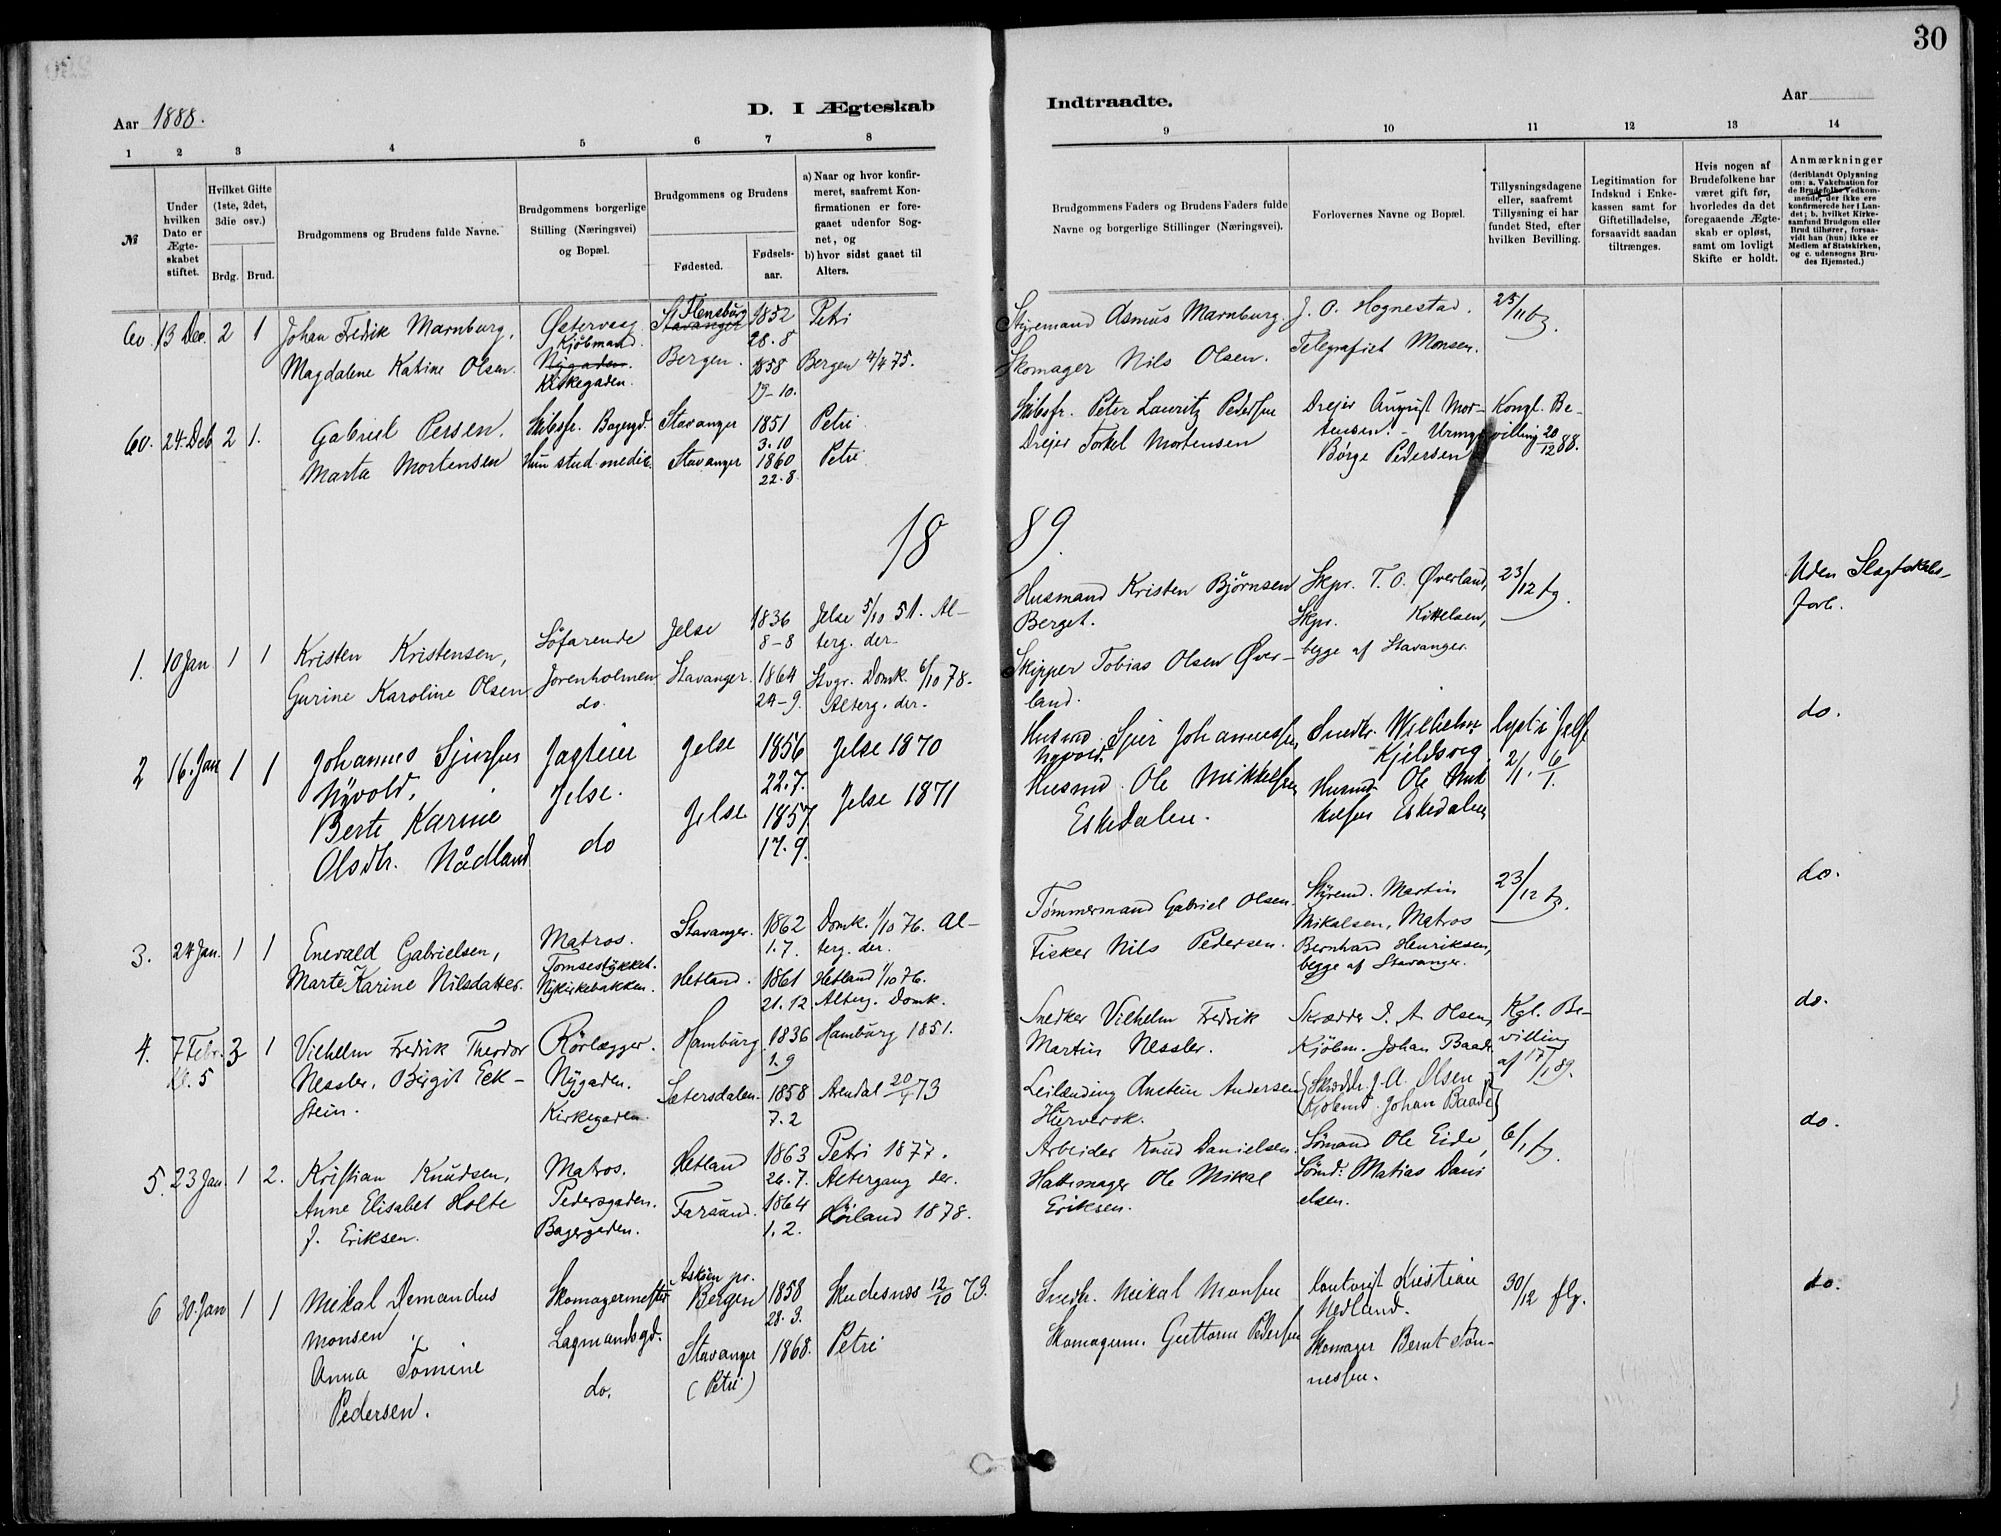 30
Aar 1888.
D. I Ægteskab
Indtraadte.
Aar
1 2 3 4 5 6 7 8
9 10 11 12 13 14
№
Under hvilken Dato er Ægteskabet stiftet.
Hvilket Gifte (1ste, 2det, 3die osv.)
Brdg. Brud.
Brudgommens og Brudens fulde Navne.
Brudgommens borgerlige Stilling (Næringsvei) og Bopæl.
Brudgommens og Brudens
Fødested.
Fødselsaar.
a) Naar og hvor konfirmeret, saafremt Konfirmationen er foregaaet udenfor Sognet, og
b) hvor sidst gaaet til Alters.
Brudgommens Faders og Brudens Faders fulde Navne og borgerlige Stillinger (Næringsvei).
Forlovernes Navne og Bopæl.
Tillysningsdagene eller, saafremt Tillysning ei har fundet Sted, efter hvilken Bevilling.
Legitimation for Indskud i Enkekassen samt for Giftetilladelse, forsaavidt saadan tiltrænges.
Hvis nogen af Brudefolkene har været gift før, hvorledes da det foregaaende Ægteskab er opløst, samt om lovligt Skifte er holdt.
Anmærkninger
(deriblandt Oplysning om: a. Vakcination for de Brudefolks Vedkommende, der ikke ere konfirmerede her i Landet; b. hvilket Kirkesamfund Brudgom eller Brud tilhører, forsaavidt han (hun) ikke er Medlem af Statskirken, og c. udensogns Brudes Hjemsted.)
60. 13 Dec. 2 1 Johan Fredrik Marnburg,
Magdalene Katine Olsen.
Østervaag
Kjøbmand.
Nygaden.
Kirkegaden.
Flensburg
Stavanger
Bergen.
1852
28.8
1858
19-10.
Petri
Bergen 4/4 75.
Styremand Asmus Marnburg.
Skomager Nils Olsen.
J. O. Hognestad.
Telegrafist Monsen.
25/11 fg.
60. 24 Deb 2 1. Gabriel Persen.
Marta Mortensen
Skibsfr. Bagergd.
Hun stud. medic.
Stavanger
Stavanger
1851
3.10
1860
22.8
Petri
Petri
Skibsfr. Peter Lauritz Pedersen
Drejer Torkel Mortensen
Drejer August Mortensen. - Urmg.
Børge Pedersen
Kongl. Bevilling 20/12 88.
18
89.
1. 10 Jan 1 1 Kristen Kristensen,
Gurine Karoline Olsen
Söfarende
Jorenholmen
do.
Jelse
Stavanger.
1836
8-8
1864
24-9.
Jelse 5/10 51. Alterg. der.
Stvgr. Domk. 6/10 78.
Alterg. der.
Husmand Kristen Bjørnsen
Berget.
Skipper Tobias Olsen Øverland.
Skpr. T. O. Øverland,
Skpr. Kittelsen,
begge af Stavanger.
23/12 fg.
Uden Slegtskabsforb.
2 16. Jan 1 1 Johannes Sjursen
Nyvold,
Berte Karine
Olsdtr. Nådland
Jagteier
Jelse.
do
Jelse
Jelse
1856
22.7.
1857
17.9.
Jelse 1870
Jelse 1871
Husmd. Sjur Johannessen
Nyvold.
Husmd. Ole Mikkelsen
Eskedalen.
Snedkr. Wilhelm
Kjeldsveg
Husmd. Ole Mikkelsen Eskedalen
lyst i Jelse
2/1. 6/1.
do.
3. 24 Jan. 1 1 Enevald Gabrielsen,
Marte Karine Nilsdatter.
Matros.
Tomsestykket.
Nykirkebakken.
Stavanger.
Hetland.
1862
1.7.
1861
21.12
Domk. 1/10 76. Alterg. der.
Hetland 1/10 76.
Alterg. Domk.
Tömmermand Gabriel Olsen.
Fisker Nils Pedersen.
Styrmd. Martin
Mikalsen, Matros
Bernhard Henriksen,
begge af Stavanger.
23/12 fg.
do.
4. 7 Febr. 3 1
Kl. 5
Vilhelm Fredrik Theodor
Nessler, Birgit Eckstein.
Rörlægger.
Nygaden.
Kirkegaden.
Hamburg.
Sætersdalen.
1836
1.9
1858
7.2
Hamburg 1851.
Arendal 20/4 73
Snedker Vilhelm Fredrik
Martin Nessler.
Leilænding Anstein Andersen
Hurverok.
Skrædder J. A. Olsen,
Kjöbm. Johan Baade.
(Skrddr. J. A. Olsen
Kjöbmd. Johan Baade)
Kgl. Bevilling
af 17/1 89.
do.
5. 23 Jan. 1 2. Kristian Knudsen,
Anne Elisabet Holte
f. Eriksen.
Matros.
Pedersgaden.
Bagergaden.
Hetland
Farsund.
1863
26.7.
1864
1.2.
Petri 1877.
Altergang der.
Höiland 1878.
Arbeider Knud Danielsen.
Hattemager Ole Mikal
Eriksen.
Sömand Ole Eide,
Sömd: Matias Danielsen.
6/1 fg.
do.
6 30 Jan 1 1 Mikal Demandus
Monsen
Anna Tomine
Pedersen.
Skomagermester
Lagmandsgd.
do.
Askøen pr.
Bergen
Stavanger
(Petri)
1858
28.3.
1868.
Skudesnes 12/10 73.
Petri
Snedk. Mikal Monsen
Skomagerm. Guttorm Pedersen
Kontorist Kristian
Nedland.
Skomager Bernt Tønnessen.
30/12 flg.
do.